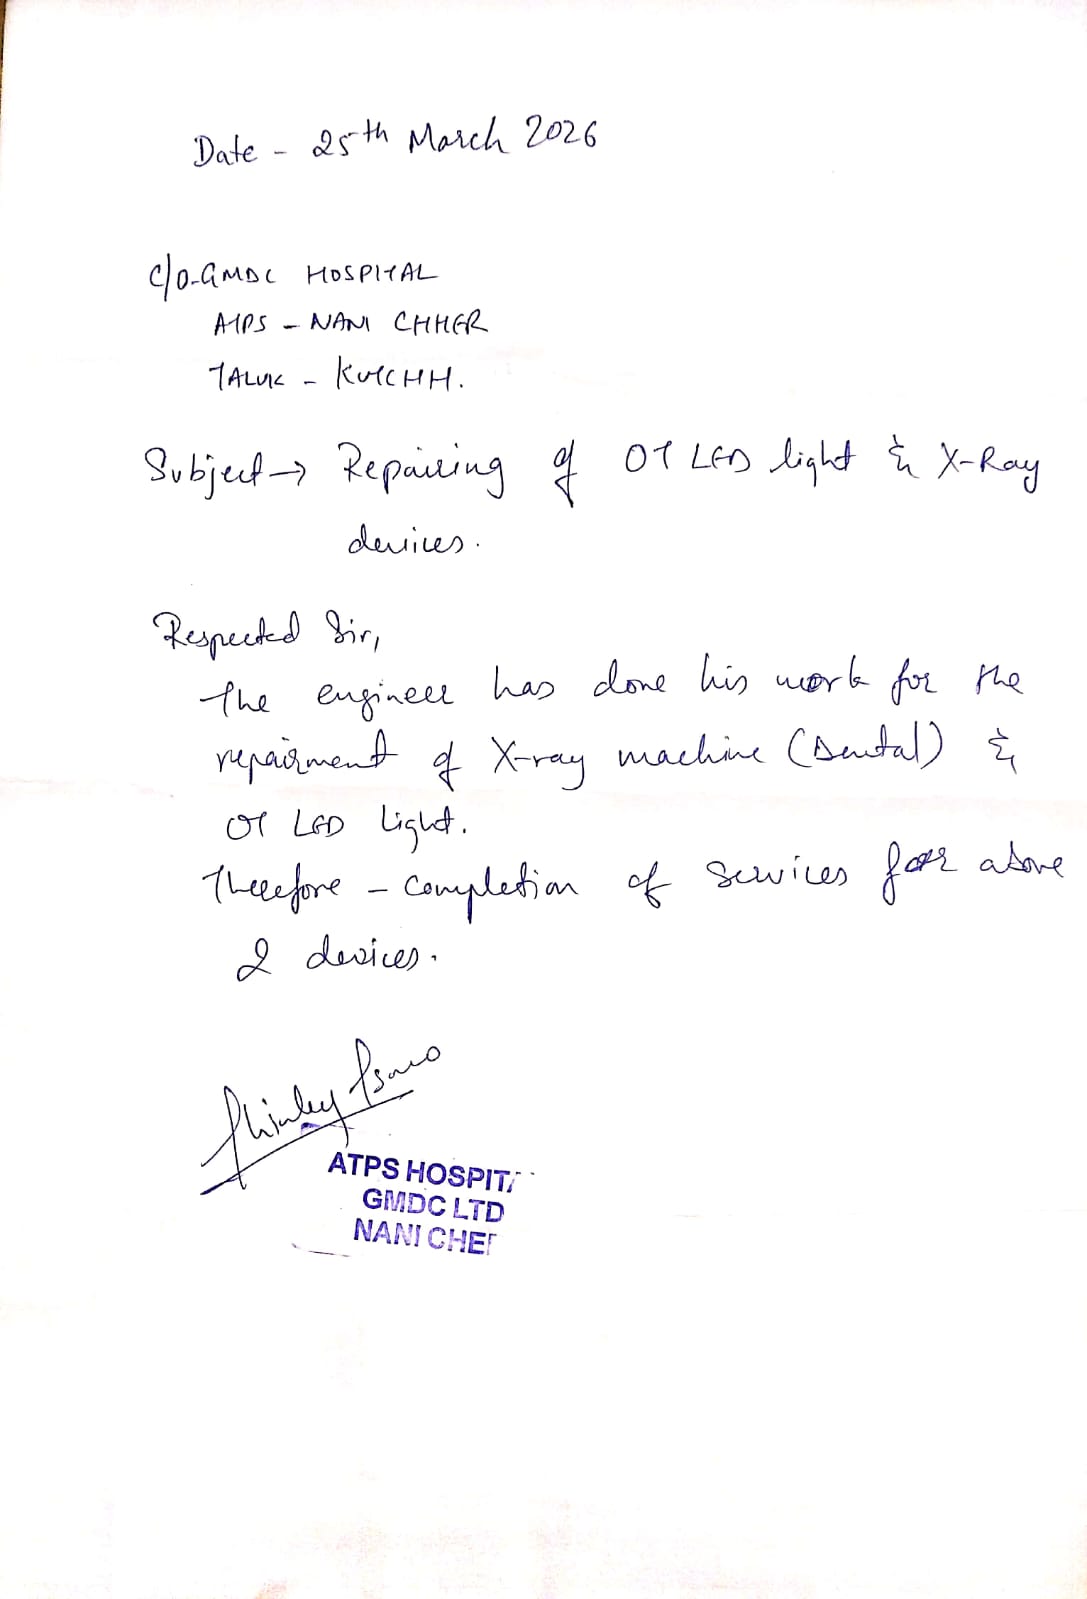 Date - 25th March 2026
C/O-GMDC HOSPITAL
ATPS - NANI CHHER
TALUK - KUTCHH.
Subject → Repairing of OT LED light & X-Ray
devices.
Respected Sir,
The engineer has done his work for the
repairment of X-ray machine (Dental) &
OT LED Light.
Therefore - completion of services for above
2 devices.
ATPS HOSPIT
GMDC LTD
NANI CHE